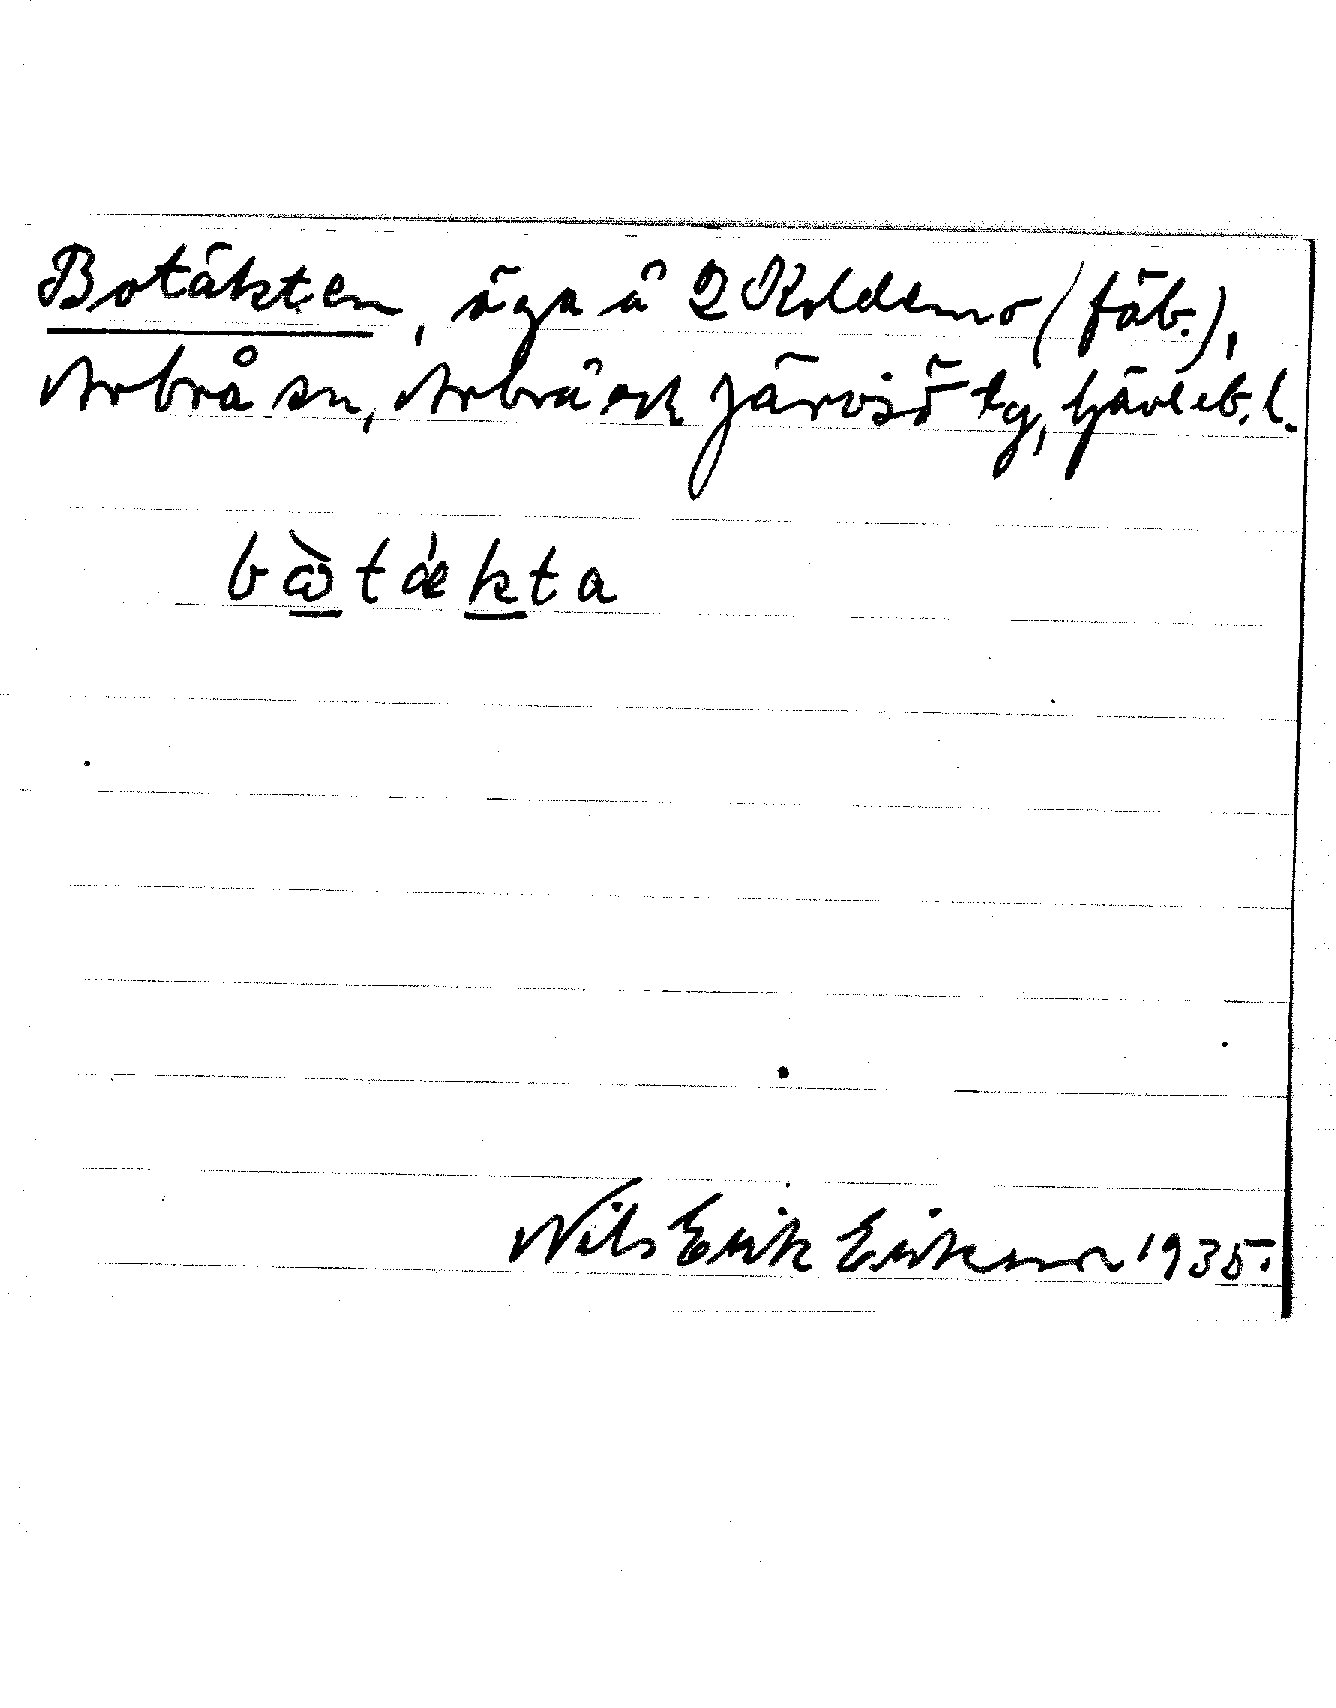 Botäkten, äga å 2 Koldemo (fäb.),
Arbrå sn, Arbrå och Järvsö tg, Gävleb. l.
bὼtǽkta
Nils Erik Erikson 1935.